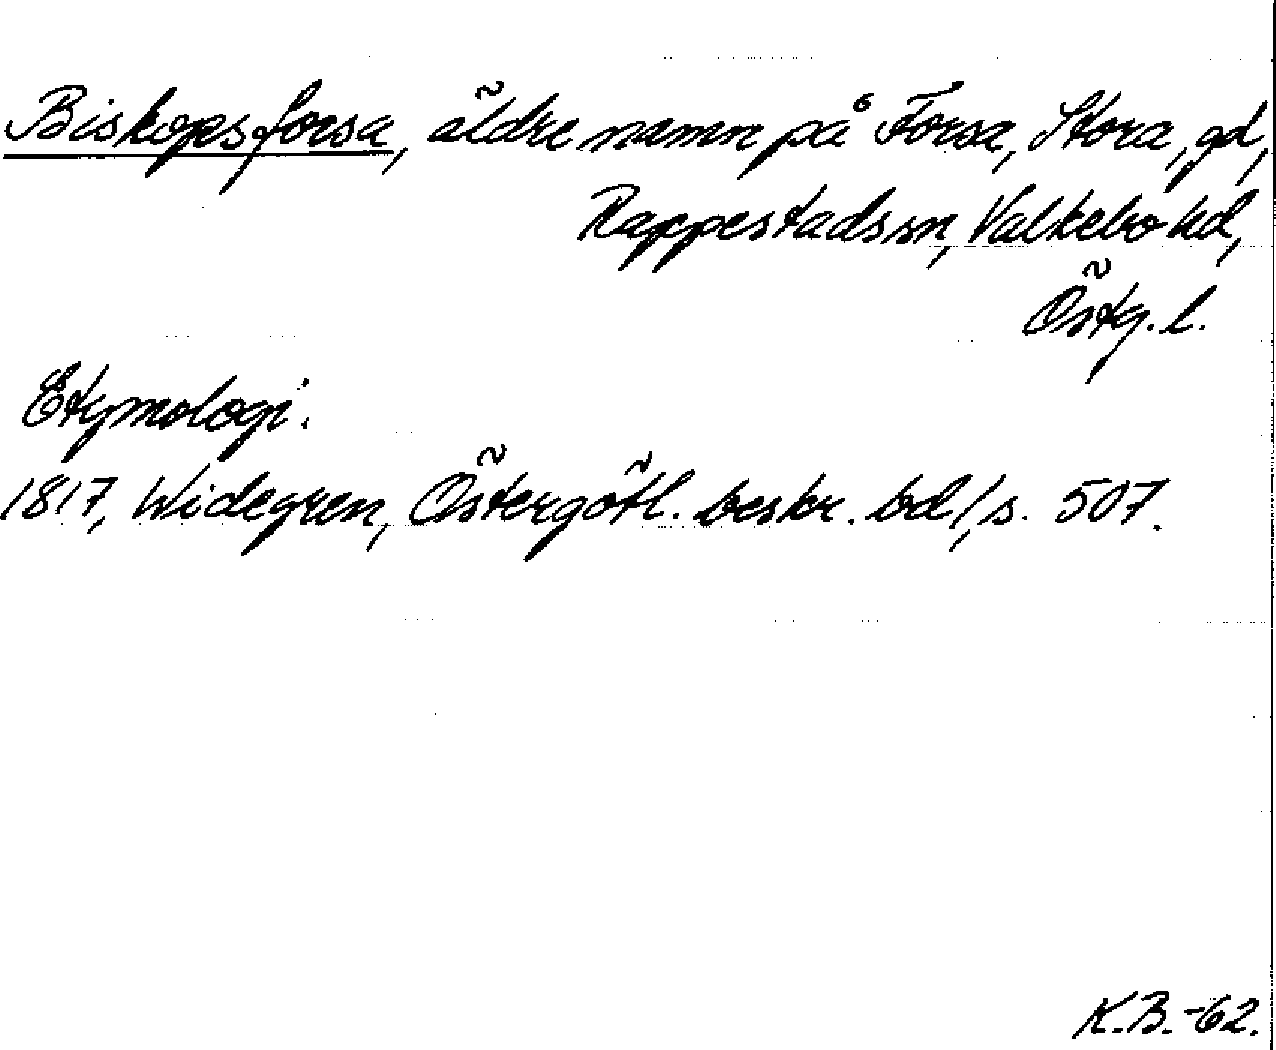 Biskopsforsa, äldre namn på Forsa, Stora, gd,
Rappestads sn, Valkebo hd,
Östg. l.
Etymologi.
1817, Widegren, Östergötl. beskr. bd 1, s. 507.
K.B.-62.